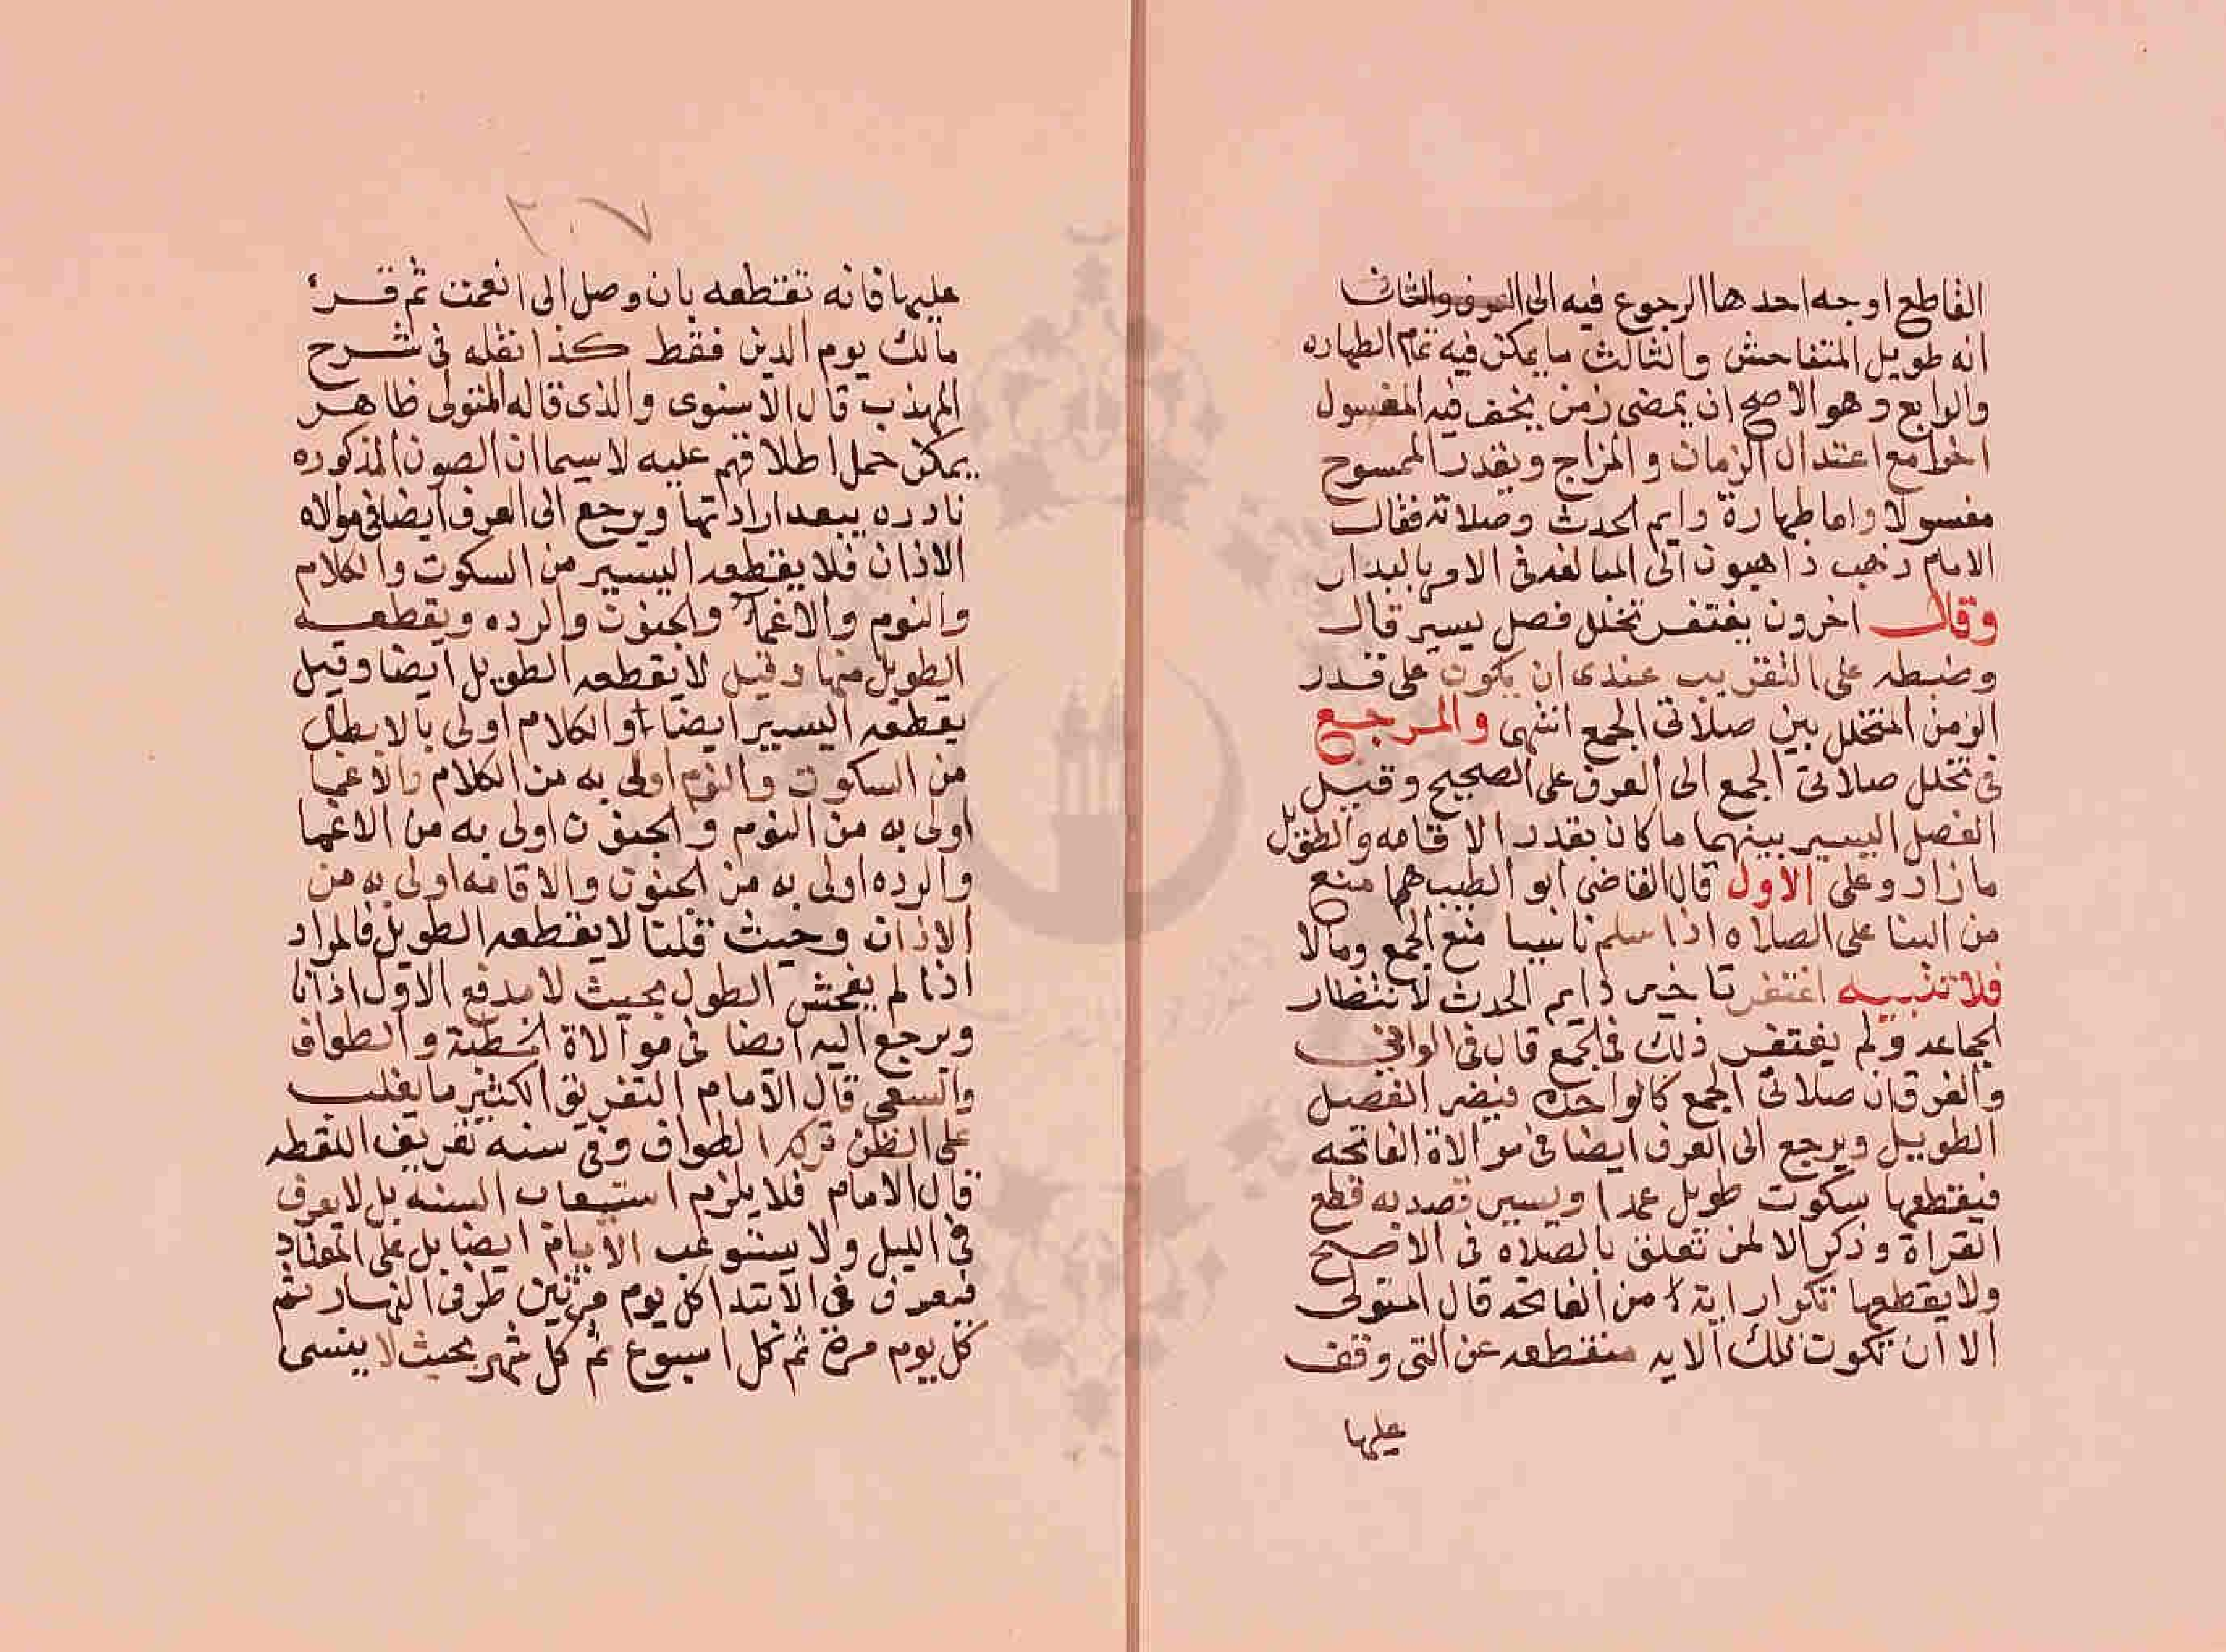 القاطع اوجه احدها الرجوع فيه الى العرف والثانى
انه طويل المتفاحش والثالث ما يمكن فيه تمام الطهاره
والرابع وهو الاصح ان يمضى زمن يجف فيه المغسول
اخرا مع اعتدال الزمان والمزاج ويقدر الممسوح
مغسولا واما طهارة دايم الحدث وصلاته فقال
الامام ذهب ذاهبون الى المبالغه فى الامر بالبدار
وقال اخرون يغتفر تخلل فصل يسير قال
وضبطه على التقريب عندى ان يكون على قدر
الزمن المتخلل بين صلاتى الجمع انتهى والمرجع
فى تخلل صلاتى الجمع الى العرف على الصحيح وقيل
الفصل اليسير بينهما ما كان بقدر الاقامه والطويل
ما زاد وعلى الاول قال القاضى ابو الطيب هما منع
من البنا على الصلاه اذا سلم ناسيا منع الجمع ومالا
فلا تنبيه اغتفر تاخير دايم الحدث لانتظار
الجماعه ولم يغتفر ذلك فى الجمع قال فى الوافى
والفرق ان صلاتى الجمع كالواحدة فيضر الفصل
الطويل ويرجع الى العرف ايضا فى موالاة الفاتحه
فيقطعها سكوت طويل عمدا ويسير قصد به قطع
القراة وذكر الا لمن تعلق بالصلاة فى الاصح
ولا يقطعها تكرار اية من الفاتحه قال المتولى
الا ان تكون تلك الايه منقطعه عن التى وقف
عليها
٢٠٧
عليها فانه تقتطعه بان وصل الى انعمت ثم قرء
مالك يوم الدين فقط كذا نقله فى شرح
المهذب قال الاسنوى والذى قاله المتولى ظاهر
يمكن حمل اطلاقهم عليه لا سيما ان الصون المذكوره
نادره يبعد اراداتها ويرجع الى العرف ايضا فى مولاه
الاذان فلا يقطعه اليسير من السكوت والكلام
والنوم والاغما والجنون والرده ويقطعه
الطويل منها وقيل لا يقطعه الطويل ايضا وقيل
يقطعه اليسير ايضا والكلام اولى بالابطال
من السكوت والنوم اولى به من الكلام والاغما
اولى به من النوم والجنون اولى به من الاغما
والرده اولى به من الجنون والاقامه اولى به من
الاذان وحيث قلنا لا يقطعه الطويل فالمراد
اذا لم يفحش الطول بحيث لا مع الاول اذانا
ويرجع اليه ايضا فى موالاة الخطبة والطواف
والسعى قال الامام التفريق الكثير ما يغلب
على الظن تركه الطواف وفى سنه تعريف اللقطه
قال الامام فلا يلزم استيعاب السنه بل لا يعرف
فى الليل ولا يستوعب الايام ايضا بل على المعتاد
فيعرف فى الابتدا كل يوم مرتين طرفى النهار ثم
كل يوم مرة ثم كل اسبوع ثم كل شهر بحيث لا ينسى